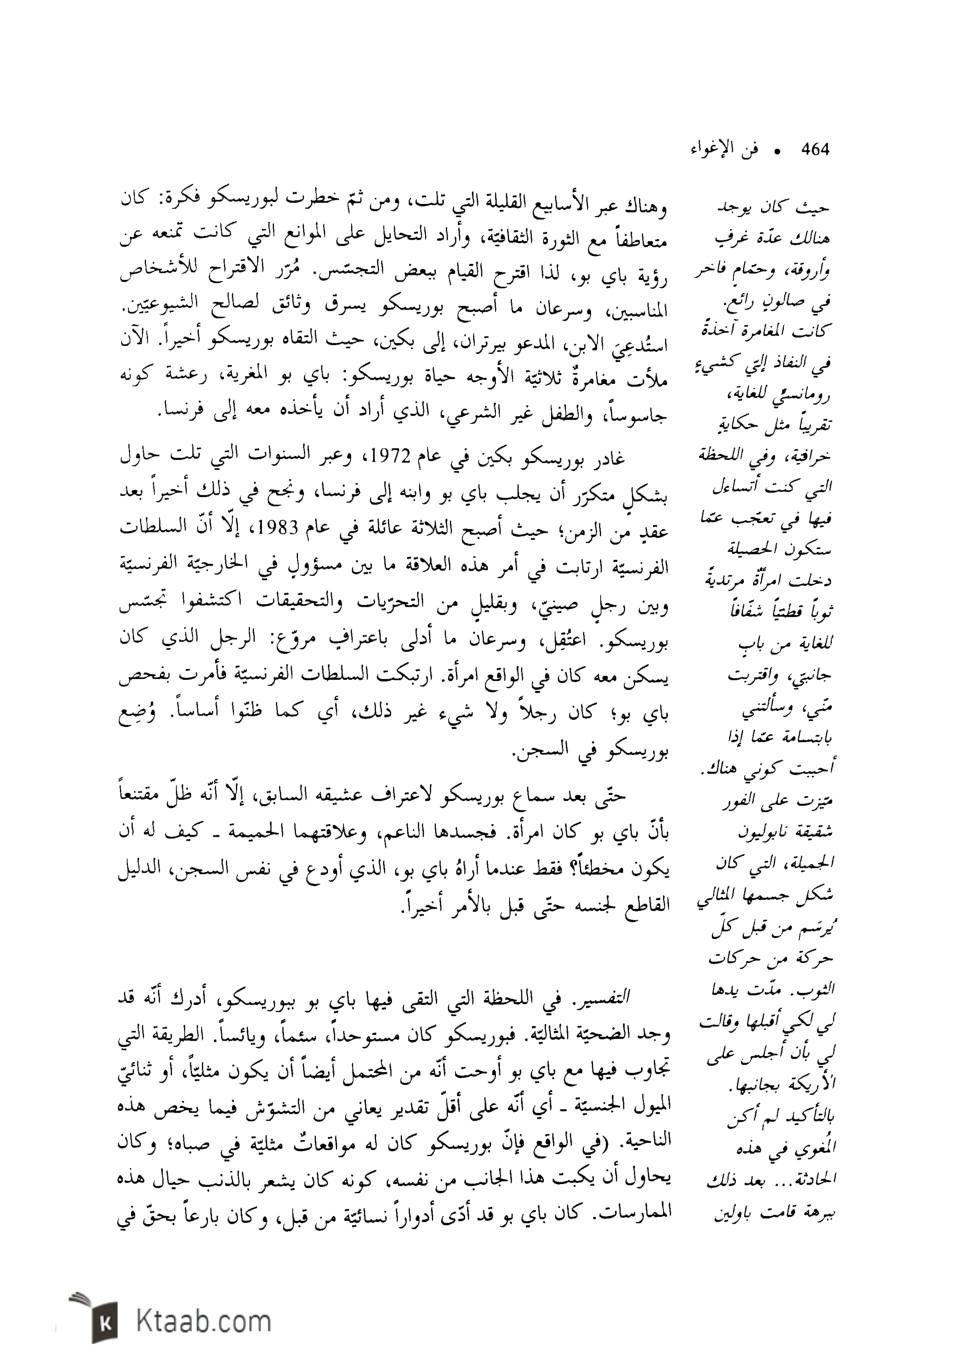 464 • فن الإغواء
حيث كان يوجد
هنالك عدّة غرفٍ
وأروقة، وحمّام فاخر
في صالونٍ رائع.
كانت المغامرة آخذةً
في النفاذ إليّ كشيءٍ
رومانسيٍّ للغاية،
تقريباً مثل حكايةٍ
خرافية، وفي اللحظة
التي كنت أتساءل
فيها في تعجّب عمّا
ستكون الحصيلة
دخلت امرأةٌ مرتديةً
ثوباً قطنيّاً شفّافاً
للغاية من بابٍ
جانبيّ، واقتربت
منّي، وسألتني
بابتسامة عمّا إذا
أحببت كوني هناك.
ميّزت على الفور
شقيقة نابوليون
الجميلة، التي كان
شكل جسمها المثالي
يُرسَم من قبل كلّ
حركة من حركات
الثوب. مدّت يدها
لي لكي أقبلها وقالت
لي بأن أجلس على
الأريكة بجانبها.
بالتأكيد لم أكن
المُغوي في هذه
الحادثة... بعد ذلك
ببرهة قامت باولين
وهناك عبر الأسابيع القليلة التي تلت، ومن ثمّ خطرت لبوريسكو فكرة: كان
متعاطفاً مع الثورة الثقافيّة، وأراد التحايل على الموانع التي كانت تمنعه عن
رؤية باي بو، لذا اقترح القيام ببعض التجسّس. مُرّر الاقتراح للأشخاص
المناسبين، وسرعان ما أصبح بوريسكو يسرق وثائق لصالح الشيوعيّين.
استُدعِيَ الابن، المدعو بيرتران، إلى بكين، حيث التقاه بوريسكو أخيراً. الآن
ملأت مغامرةٌ ثلاثيّة الأوجه حياة بوريسكو: باي بو المغرية، رعشة كونه
جاسوساً، والطفل غير الشرعي، الذي أراد أن يأخذه معه إلى فرنسا.
غادر بوريسكو بكين في عام 1972، وعبر السنوات التي تلت حاول
بشكلٍ متكرّر أن يجلب باي بو وابنه إلى فرنسا، ونجح في ذلك أخيراً بعد
عقدٍ من الزمن؛ حيث أصبح الثلاثة عائلة في عام 1983، إلّا أنّ السلطات
الفرنسيّة ارتابت في أمر هذه العلاقة ما بين مسؤولٍ في الخارجيّة الفرنسيّة
وبين رجلٍ صينيّ، وبقليلٍ من التحرّيات والتحقيقات اكتشفوا تجسّس
بوريسكو. اعتُقِل، وسرعان ما أدلى باعترافٍ مروّع: الرجل الذي كان
يسكن معه كان في الواقع امرأة. ارتبكت السلطات الفرنسيّة فأمرت بفحص
باي بو؛ كان رجلاً ولا شيء غير ذلك، أي كما ظنّوا أساساً. وُضِع
بوريسكو في السجن.
حتّى بعد سماع بوريسكو لاعتراف عشيقه السابق، إلّا أنّه ظلّ مقتنعاً
بأنّ باي بو كان امرأة. فجسدها الناعم، وعلاقتهما الحميمة ـ كيف له أن
يكون مخطئاً؟ فقط عندما أراهُ باي بو، الذي أودع في نفس السجن، الدليل
القاطع لجنسه حتّى قبل بالأمر أخيراً.
التفسير. في اللحظة التي التقى فيها باي بو ببوريسكو، أدرك أنّه قد
وجد الضحيّة المثاليّة. فبوريسكو كان مستوحداً، سئماً، ويائساً. الطريقة التي
تجاوب فيها مع باي بو أوحت أنّه من المحتمل أيضاً أن يكون مثليّاً، أو ثنائيّ
الميول الجنسيّة ـ أي أنّه على أقلّ تقدير يعاني من التشوّش فيما يخص هذه
الناحية. (في الواقع فإنّ بوريسكو كان له مواقعاتٌ مثليّة في صباه؛ وكان
يحاول أن يكبت هذا الجانب من نفسه، كونه كان يشعر بالذنب حيال هذه
الممارسات. كان باي بو قد أدّى أدواراً نسائيّة من قبل، وكان بارعاً بحقّ في
Ktaab.com